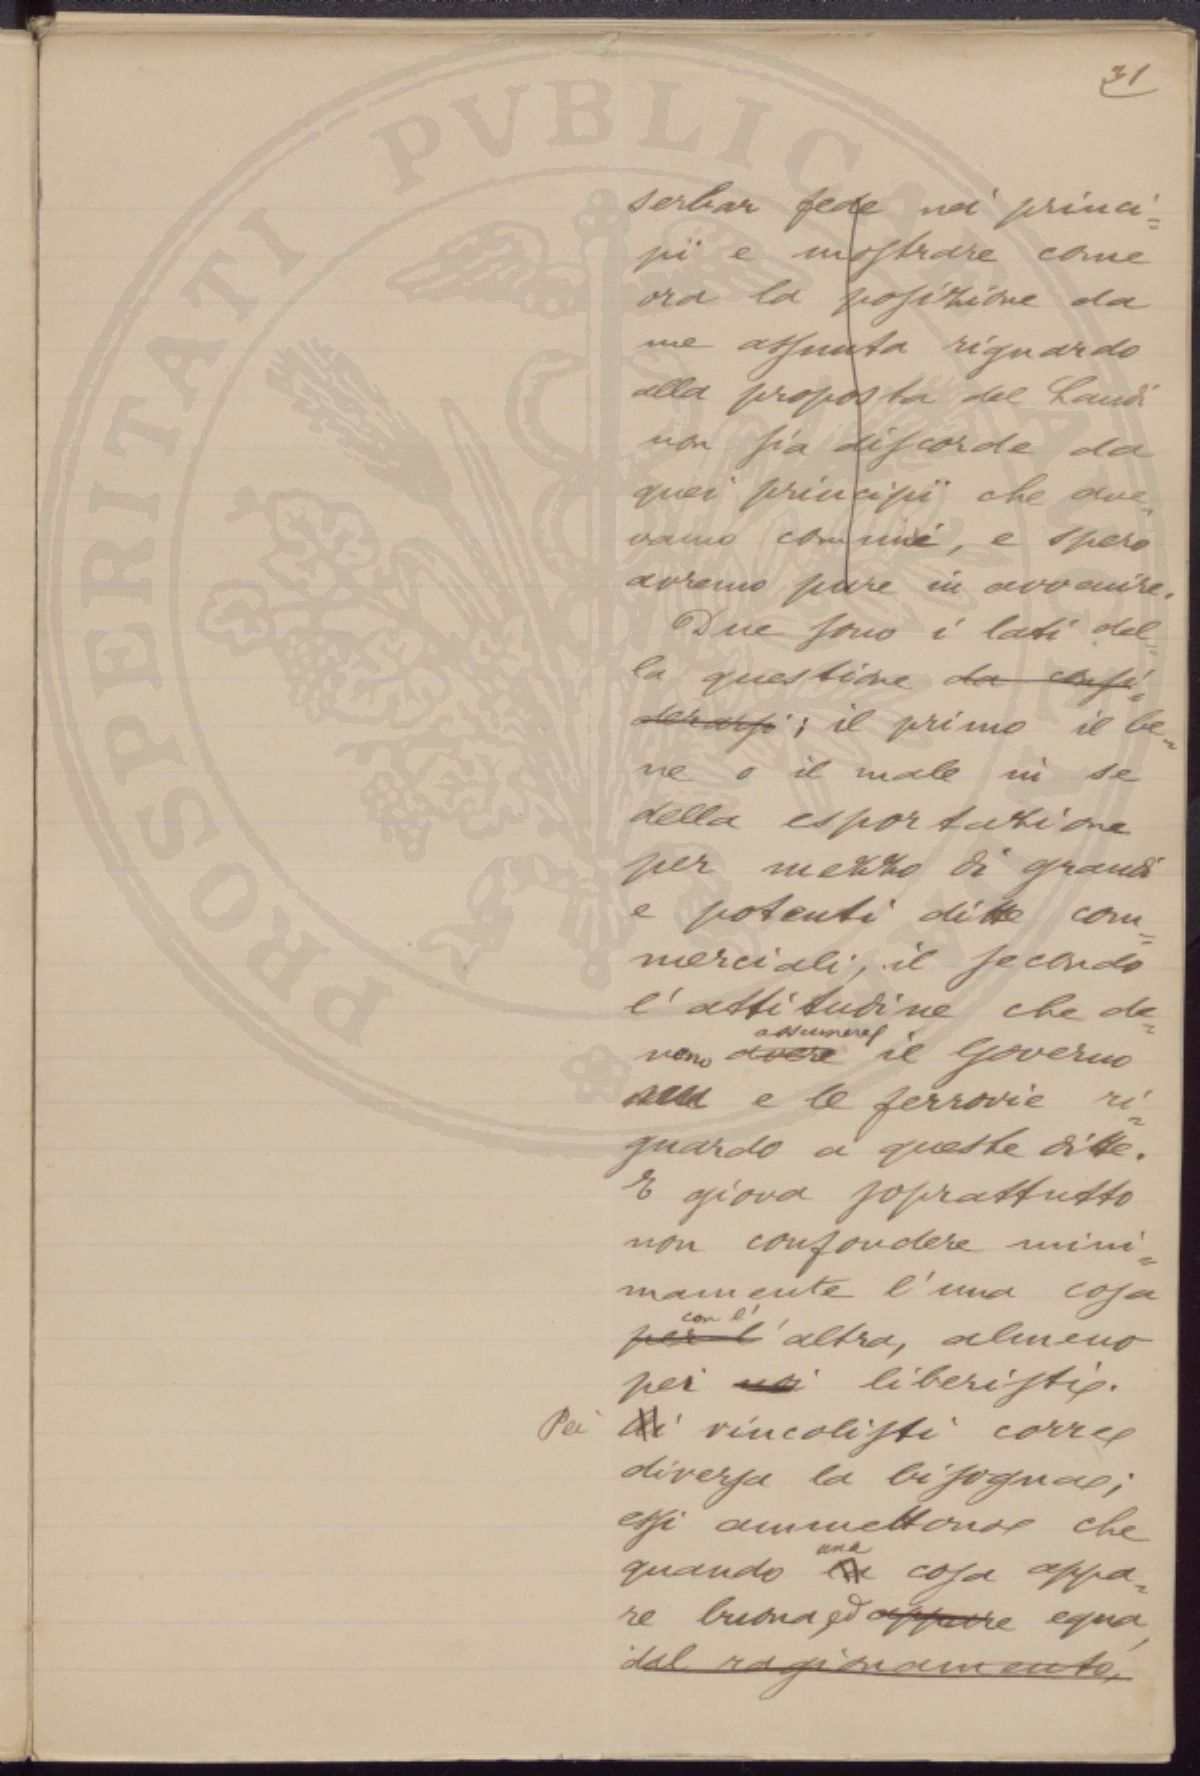 31
serbar fede nei princi=
pii e mostrare come
ora la posizione da
me assunta riguardo
alla proposta del Landi
non sia discorde da
quei principii che ave=
vamo comuni, e spero
avremo pure in avvenire.
Due sono i lati del=
la questione da consi=
derarsi; il primo il be=
ne o il male in se
della esportazione
per mezzo di grandi
e potenti ditte com=
merciali, il secondo
l'attitudine che de=
assumere
vono avere il Governo
e le ferrovie ri=
guardo a queste ditte.
E giova soprattutto
non confondere mini=
mamente l'una cosa
con l'
per l'altra, almeno
pei noi liberisti.
Pei i vincolisti corre
diversa la bisogna;
essi ammettono che
una
quando la cosa appa=
re buona, ed oppure equa,
dal ragionamento,
PROSPERITATI PVBLICAE